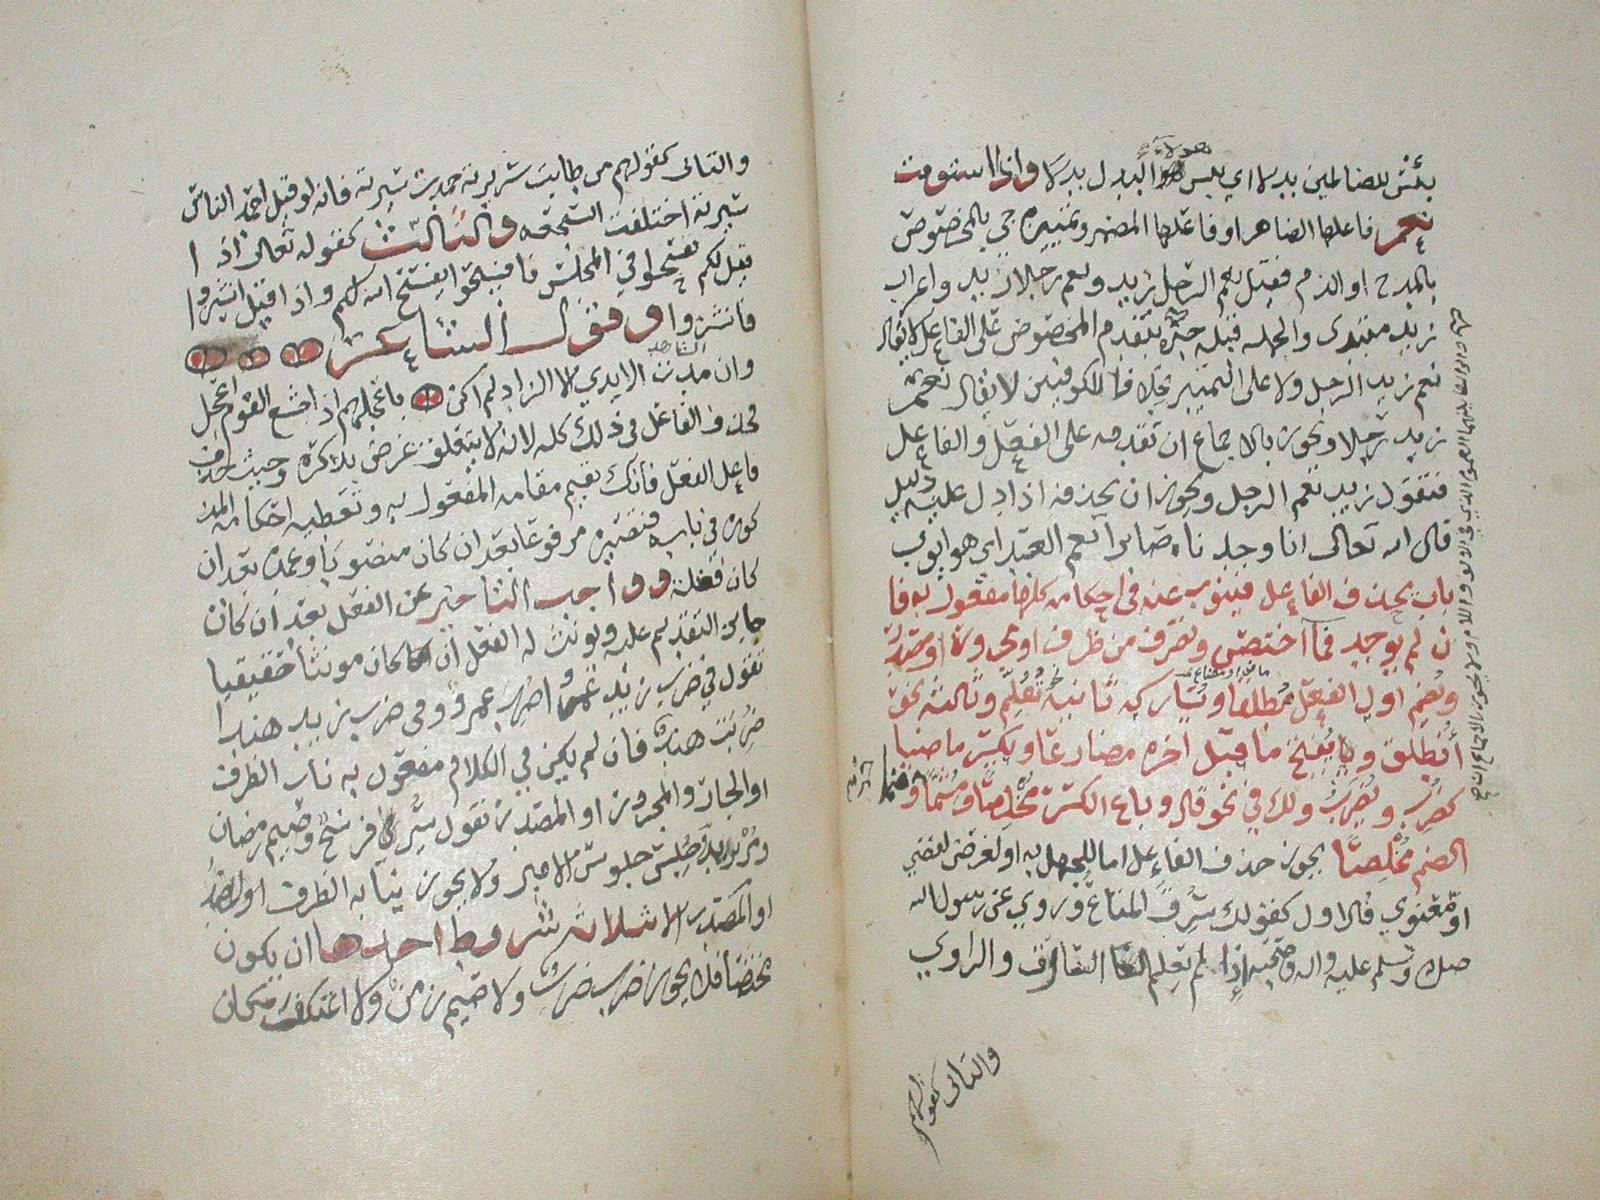 بئس للضالمين بدلا اي بئس هو البدل بدلا واذا استوفت
نعم فاعلها الضاهر او فاعلها المضمر وتمييزه جي بالمخصوص
بالمدح او الذم فقيل نعم الرجل زيد ونعم رجلا زيد واعراب
زيد مبتدى والجمله قبله خبره يتقدم المخصوص على الفاعل لا يقال
نعم زيد الرجل ولا على التمييز خلافا للكوفيين لا يقال نعم
زيد رجلا ويجوز بالاجماع ان تقدمه على الفعل والفاعل
فتقول زيد نعم الرجل ويجوز ان يحذفه اذا دل عليه دليل
قال الله تعالى انا وجدناه صابرا نعم العبد اي هو ايوب
باب يحذف الفاعل فينوب عنه في احكامه كلها مفعول به فا
ن لم يوجد فما اختص وتصرف من ظرف او مجرور او مصدر
ويضم اول الفعل مطلقا ويشاركه ثاني نحو تُعُلِّم وثالث نحو
أنطلق ويفتح ما قبل اخره مضارعا ويكسر ماضيا
كضُرِب ويُضرَب ولك في نحو قال وباع الكسر مخلصا ومشما و
الضم مخلصا يجوز حذف الفاعل اما للجهل به او لغرض لفضي
او معنوي فالاول كقولك سُرِق المتاع وروي عن رسول الله
صلى وسلم عليه واله وصحبه اذا لم يعلم السارق والراوي
والثانى كقولهم
والثانى كقولهم من طابت سريرته حمدت سيرته فانه لو قيل احمد الناس
سيرته اختلفت السجعه والثالث كقوله تعالى اذا
قيل لكم تفسحوا في المجلس فافسحوا يفسح الله لكم واذا قيل انشزوا
فانشزوا وقول الشاعر
وان مدت الايدي الى الزاد لم اكن باعجلهم اذ اجشع القوم اعجل
فحذف الفاعل في ذلك كله لانه لا يتعلق غرض بذكره وحيث حذف
فاعل الفعل فانك تقيم مقامه المفعول به وتعطيه احكامه المذ
كوره في بابه فتصيره مرفوعا بعد ان كان منصوبا وعمده بعد ان
كان فضله وواجب التاخير عن الفعل بعد ان كان
جايز التقديم عليه ويونث له الفعل ان كان مونثا حقيقيا
تقول في ضرب زيد عمرا ضُرِب عمرو وفي ضرب زيد هندا
ضُربت هند فان لم يكن في الكلام مفعول به ناب الظرف
او الجار والمجرور او المصدر تقول سير فرسخ وصيم رمضان
ومر بزيد وجلس جلوس الامير ولا يجوز نيابه الظرف او
او المصدر الا بثلاثه شروط احدها ان يكون
مختصا فلا يجوز ضرب ضرب ولا صيم زمن ولا اعتكف مكان